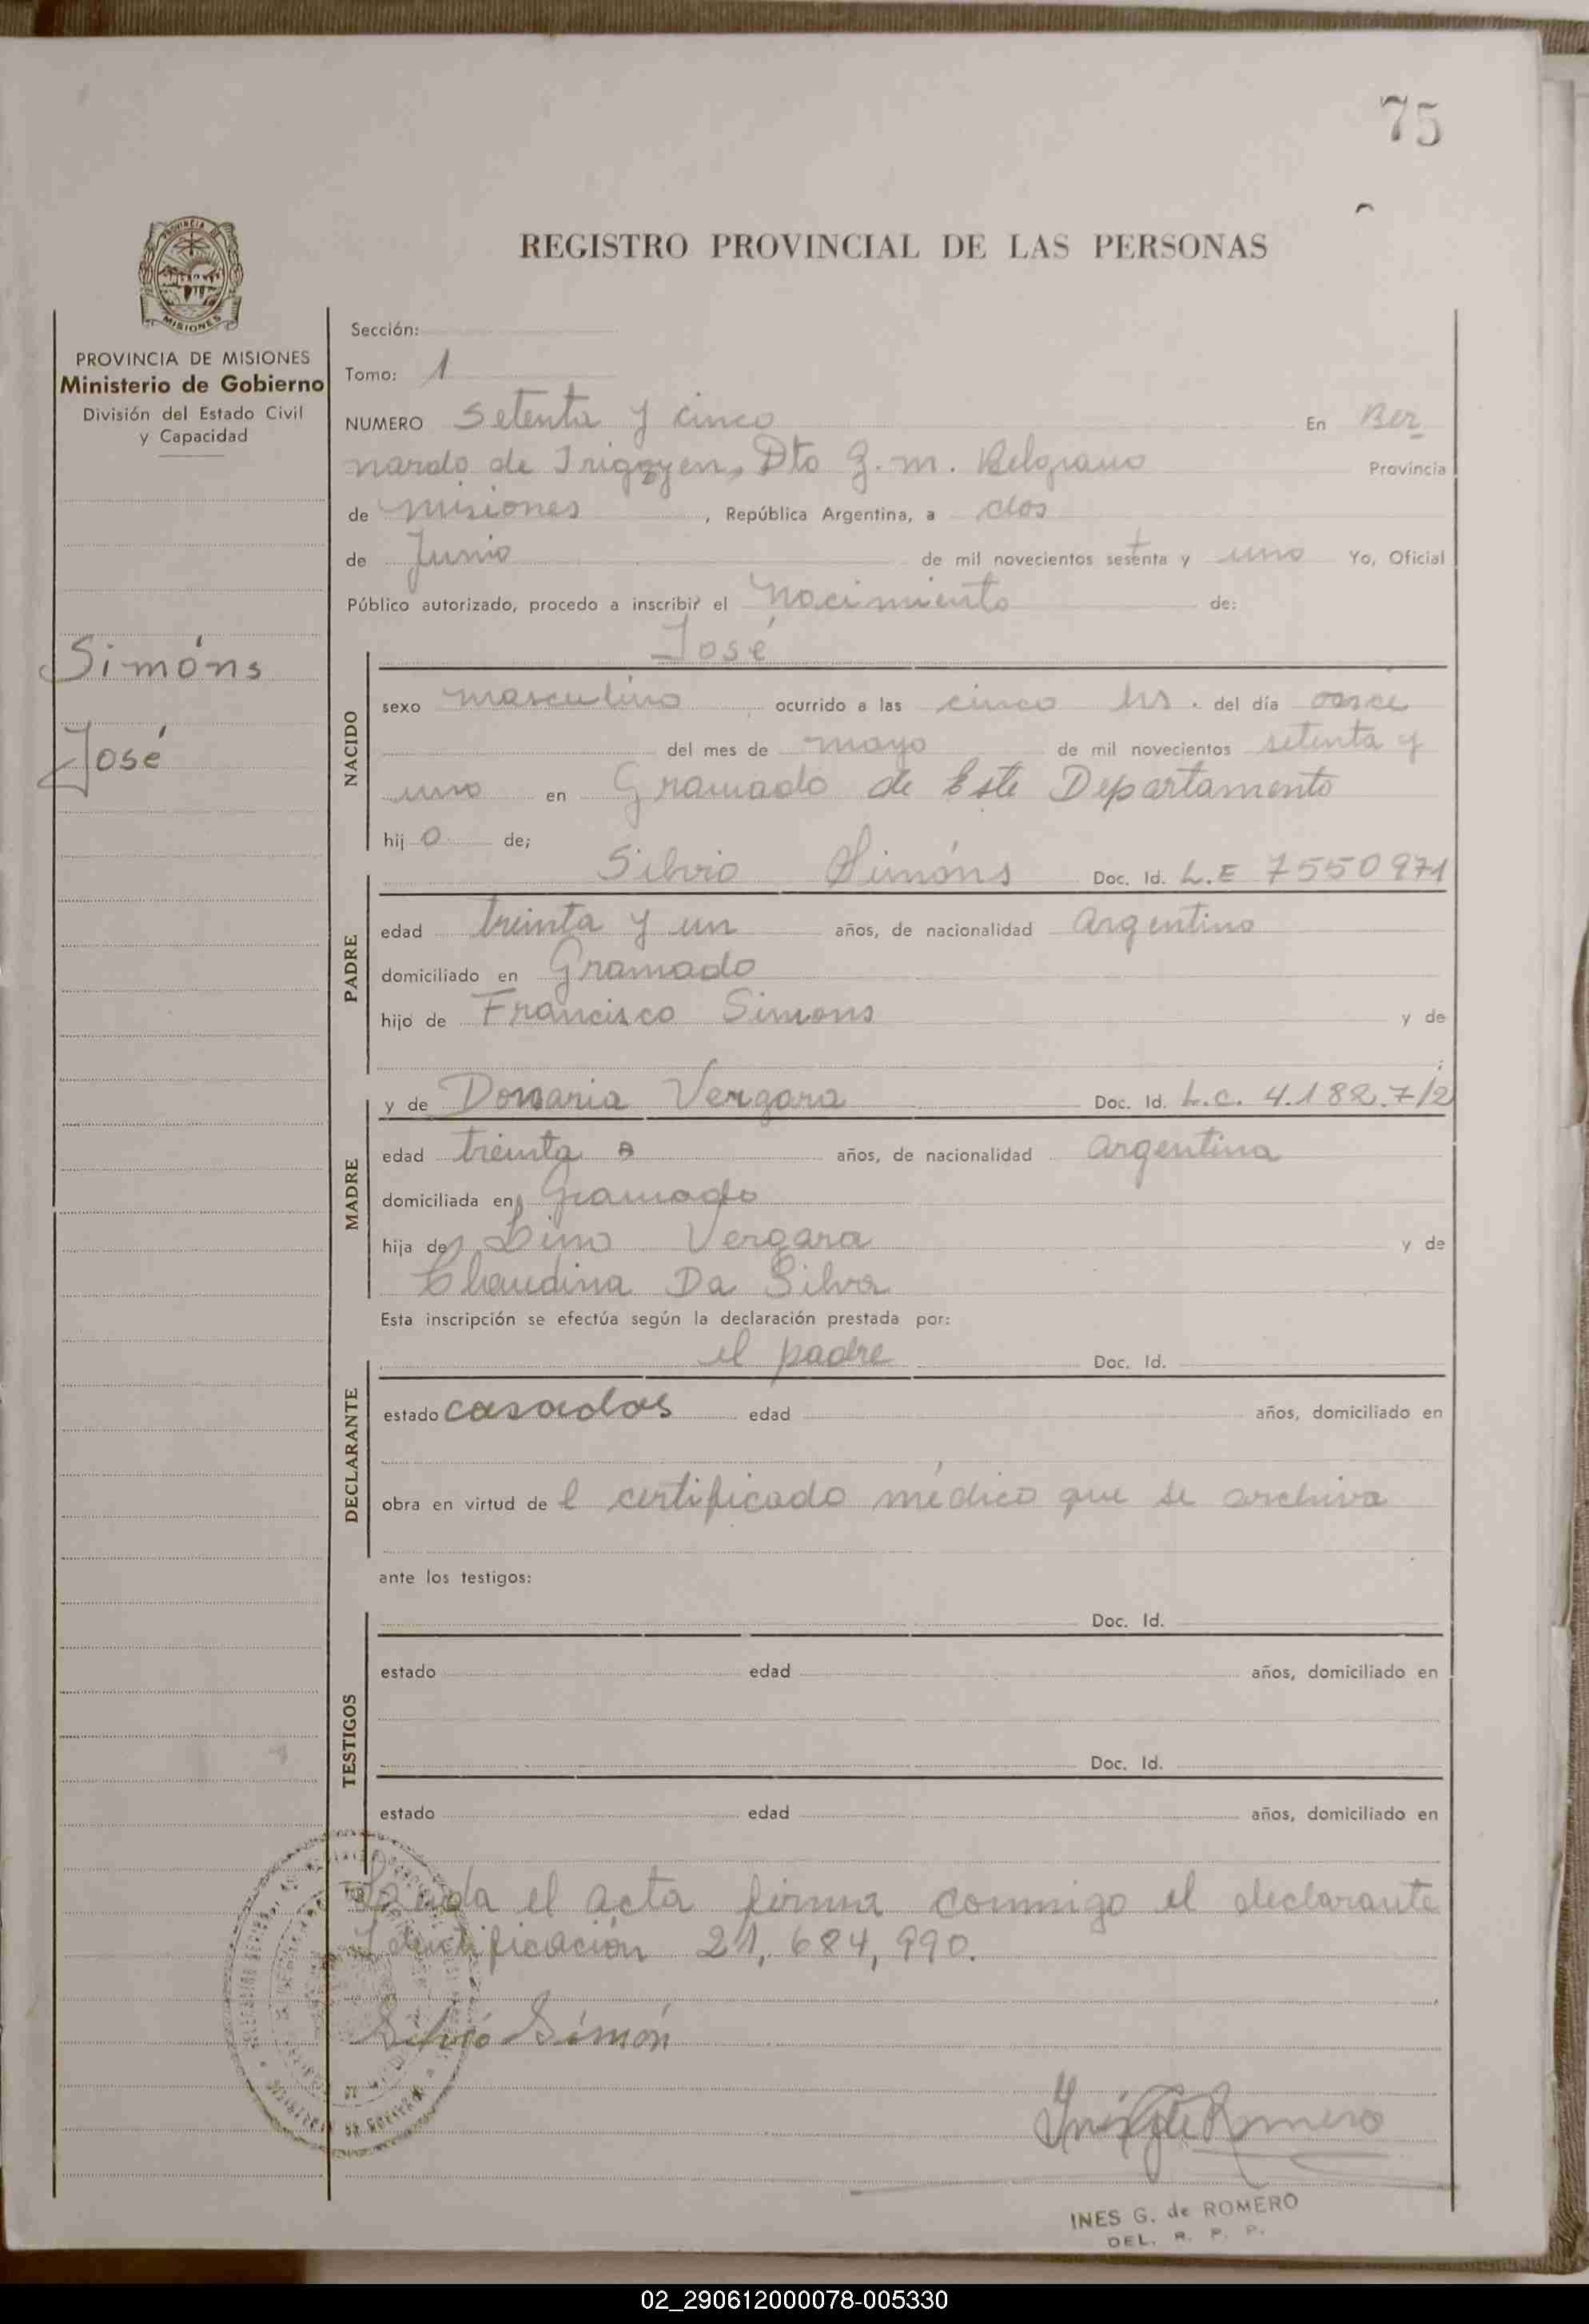 75
REGISTRO PROVINCIAL DE LAS PERSONAS
PROVINCIA DE MISIONES
Ministerio de Gobierno
División del Estado Civil
y Capacidad
Simóns
José
Sección:
Tomo: 1
NUMERO Setenta y cinco En Ber
nardo de Irigoyen, Dto G. M. Belgrano Provincia
de Misiones, República Argentina, a dos
de Junio de mil novecientos setenta y uno Yo, Oficial
Público autorizado, procedo a inscribir el nacimiento de:
José
NACIDO
sexo masculino ocurrido a las cinco hs. del día once
del mes de mayo de mil novecientos setenta y
uno en Gramado de Este Departamento
hijo de;
PADRE
Silvio Simóns Doc. Id. L.E 7550971
edad treinta y un años, de nacionalidad Argentino
domiciliado en Gramado
hijo de Francisco Simons y de
MADRE
y de Vergara Doc. Id. L.C. 4.182.712
edad treinta años, de nacionalidad argentina
domiciliada en Gramado
hija de Lino Vergara y de
Claudina Da Silva
Esta inscripción se efectúa según la declaración prestada por:
DECLARANTE
el padre Doc. Id.
estado casados edad años, domiciliado en
obra en virtud de l certificado médico que se archiva
ante los testigos:
TESTIGOS
Doc. Id.
estado edad años, domiciliado en
Doc. Id.
estado edad años, domiciliado en
Leida el acta firma conmigo el declarante
Identificación 21,684,990.
Silvio Simón
Inés G de Romero
INES G. de ROMERO
DEL. R. P. P.
02_290612000078-005330